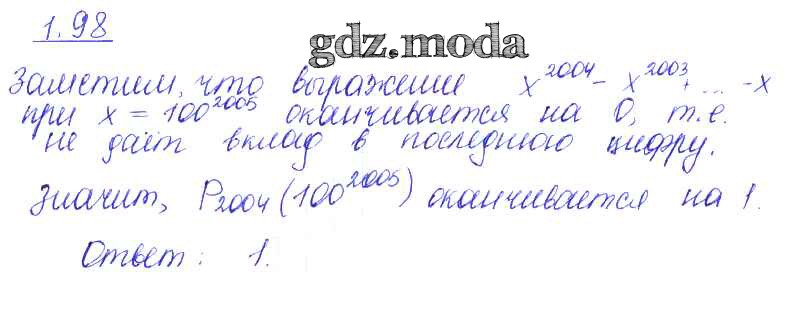 1.98
gdz.moda
Заметим, что выражение x^2004 - x^2003 + ... - x
при x = 100^2005 оканчивается на 0, т.е.
не даёт вклад в последнюю цифру.
Значит, P_2004(100^2005) оканчивается на 1.
Ответ: 1.